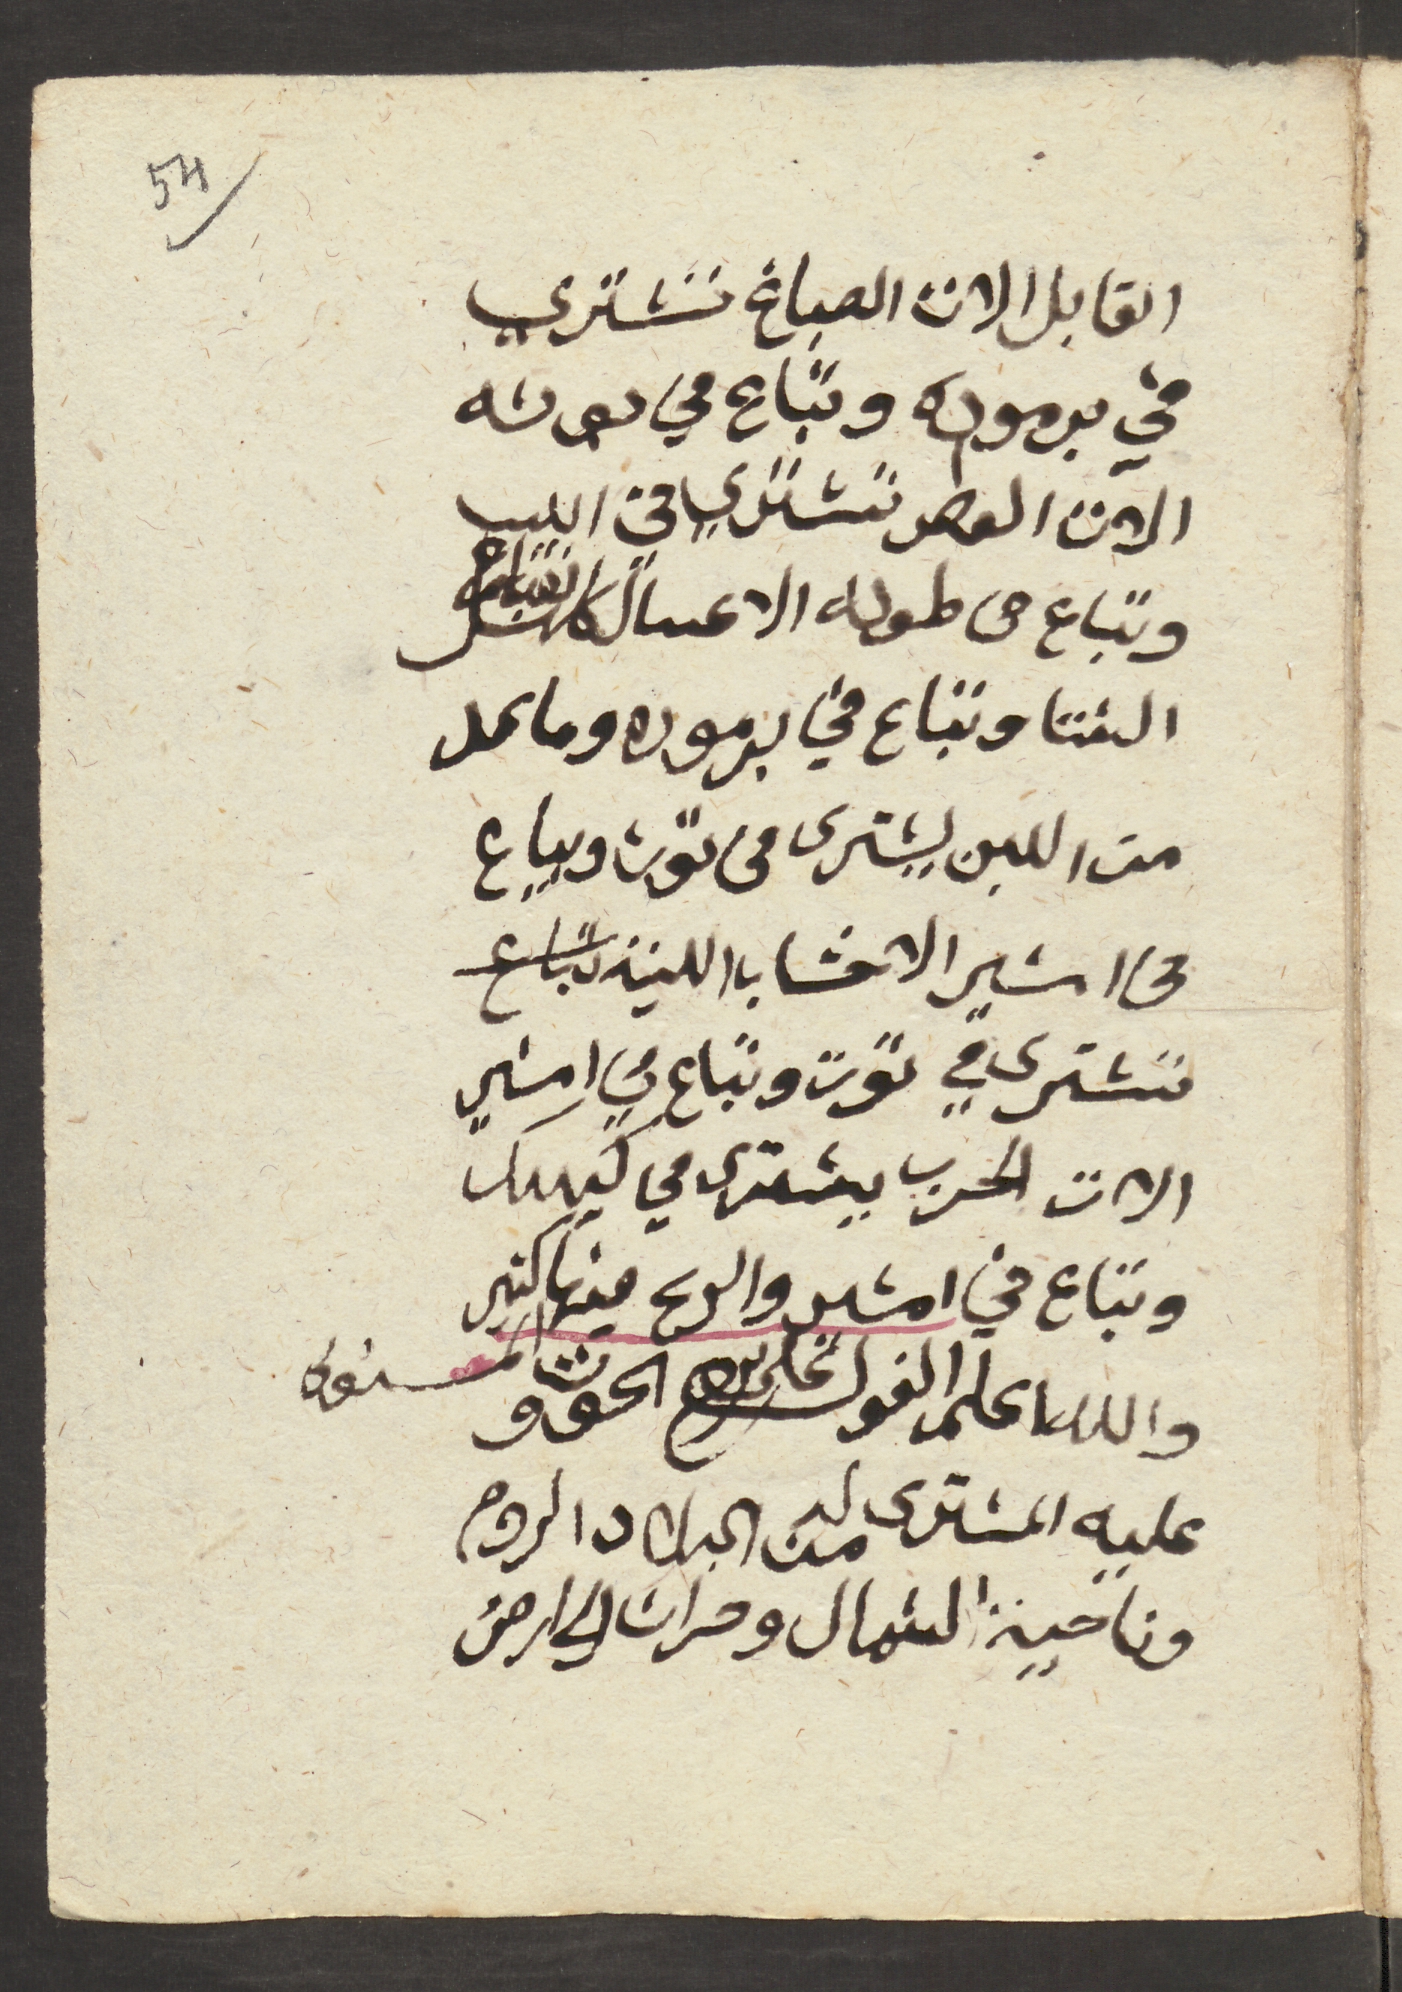 54
القابل الات الصباغ تشتري
في برموده وتباع في بوونه
الات العصر تشتري في ابيب
وتباع في طوبه الاعسال تشتري
الشتا وتباع في برموده وما عمل
من اللبن يشترى فى توت ويباع
فى امشير الاخشاب اللينة تباع
تشترى في توت وتباع في امشير
الات الحرب يشترى في كيهك
وتباع في امشير والربح فيها كتير
والله اعلم القول على برج الحوت و
المستولى
عليه المشترى له من البلاد الروم
وناحية الشمال وحران الى ارض